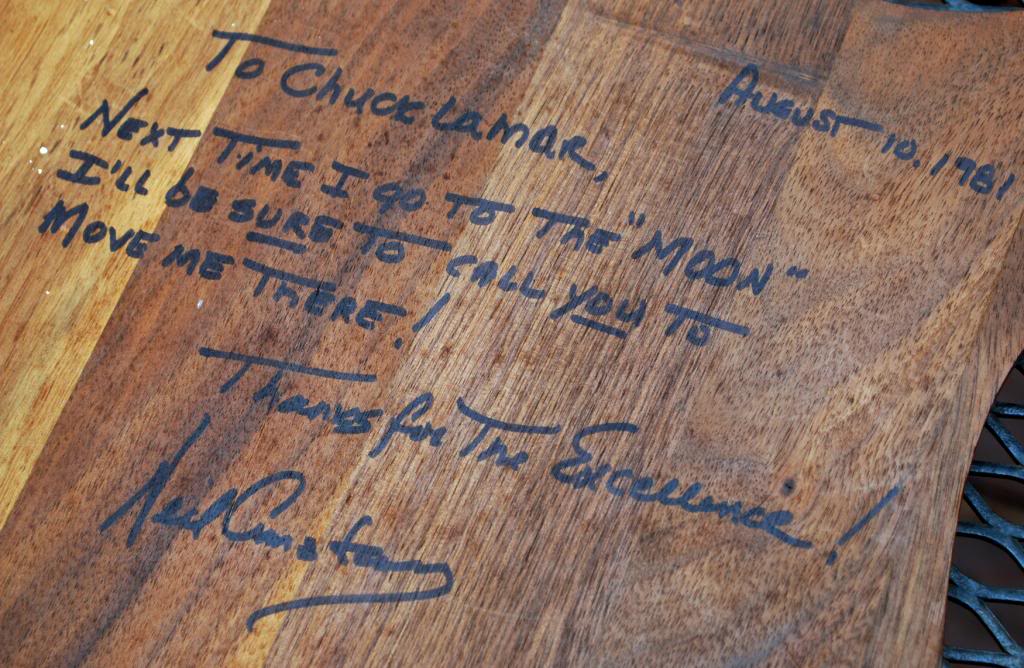 To Chuck Lamar,
August 10, 1981
Next time I go to the "Moon"
I'll be sure to call you to
move me there!
Thanks for the Excellence!
Neil Armstrong